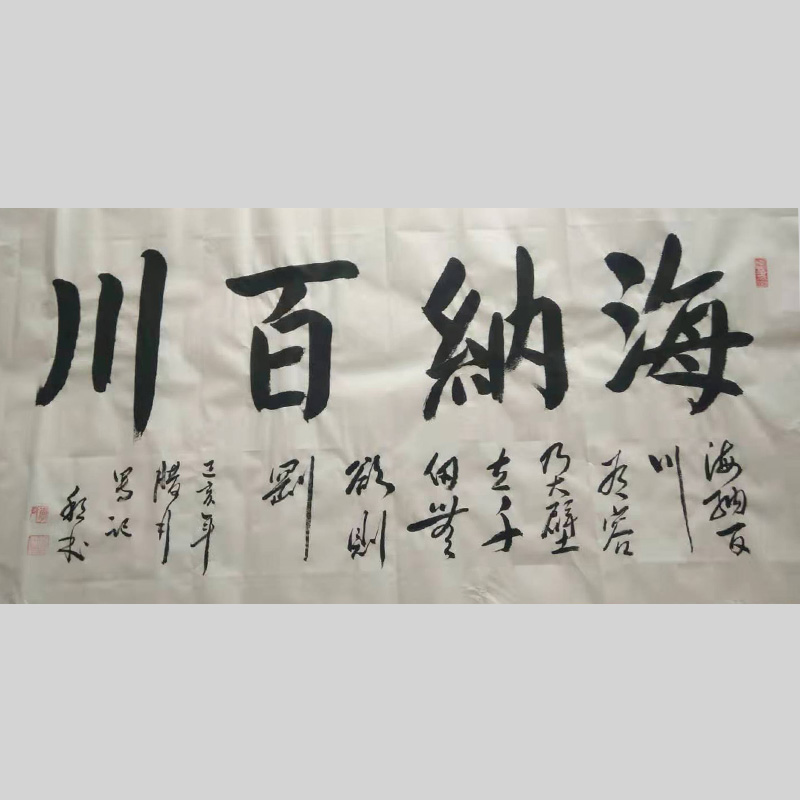 海納百川
海納百
川
有容
乃大壁
立千
仞無
欲則
剛
己亥年
臘月